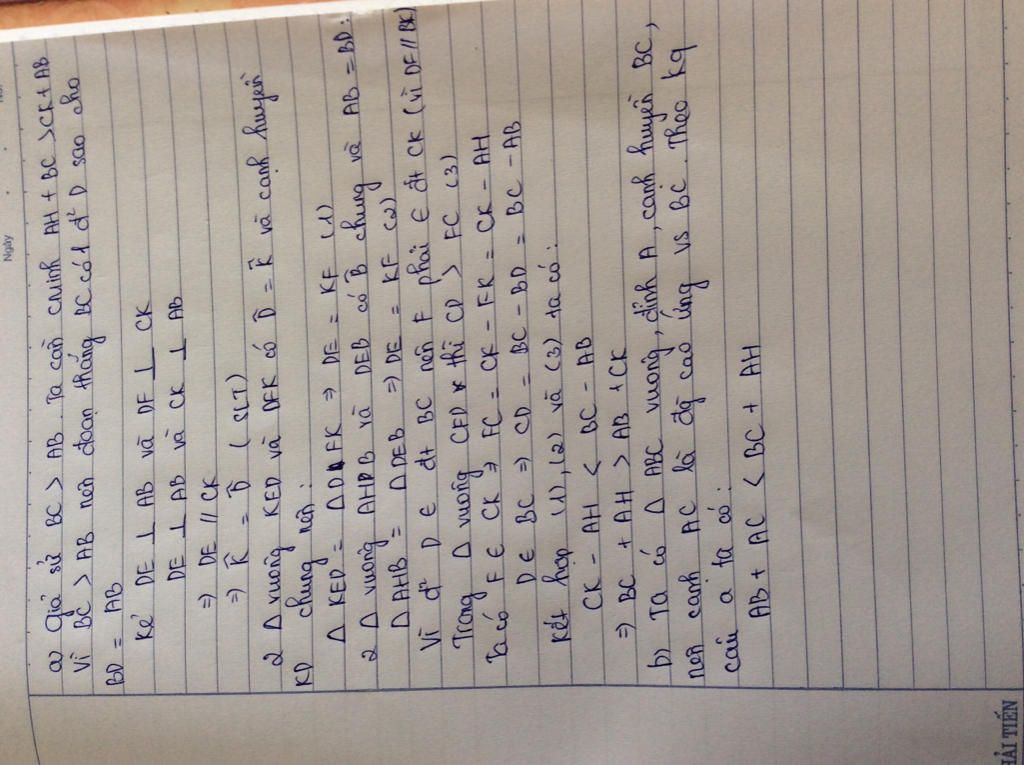 Ngày
a) Giả sử BC > AB. Ta cần CMinh AH + BC > CK + AB
Vì BC > AB nên đoạn thẳng BC có 1 đ² D sao cho
BD = AB
Kẻ DE ⊥ AB và DF ⊥ CK
DE ⊥ AB và CK ⊥ AB
⇒ DE // CK
⇒ K̂ = D̂ (SLT)
2 Δ vuông KED và DFK có D̂ = K̂ và cạnh huyền
KD chung nên:
Δ KED = Δ DFK ⇒ DE = KF (1)
2 Δ vuông AHB và DEB có B̂ chung và AB = BD:
Δ AHB = Δ DEB ⇒ DE = KF (2)
Vì đ² D ∈ đt BC nên F phải ∈ đt CK (vì DF // BK)
Trong Δ vuông CFD thì CD > FC (3)
Ta có F ∈ CK ⇒ FC = CK - FK = CK - AH
D ∈ BC ⇒ CD = BC - BD = BC - AB
Kết hợp (1), (2) và (3) ta có:
CK - AH < BC - AB
⇒ BC + AH > AB + CK
b) Ta có Δ ABC vuông, đỉnh A, cạnh huyền BC,
nên cạnh AC là đg cao ứng vs BC. Theo kq
câu a ta có:
AB + AC < BC + AH
HẢI TIẾN